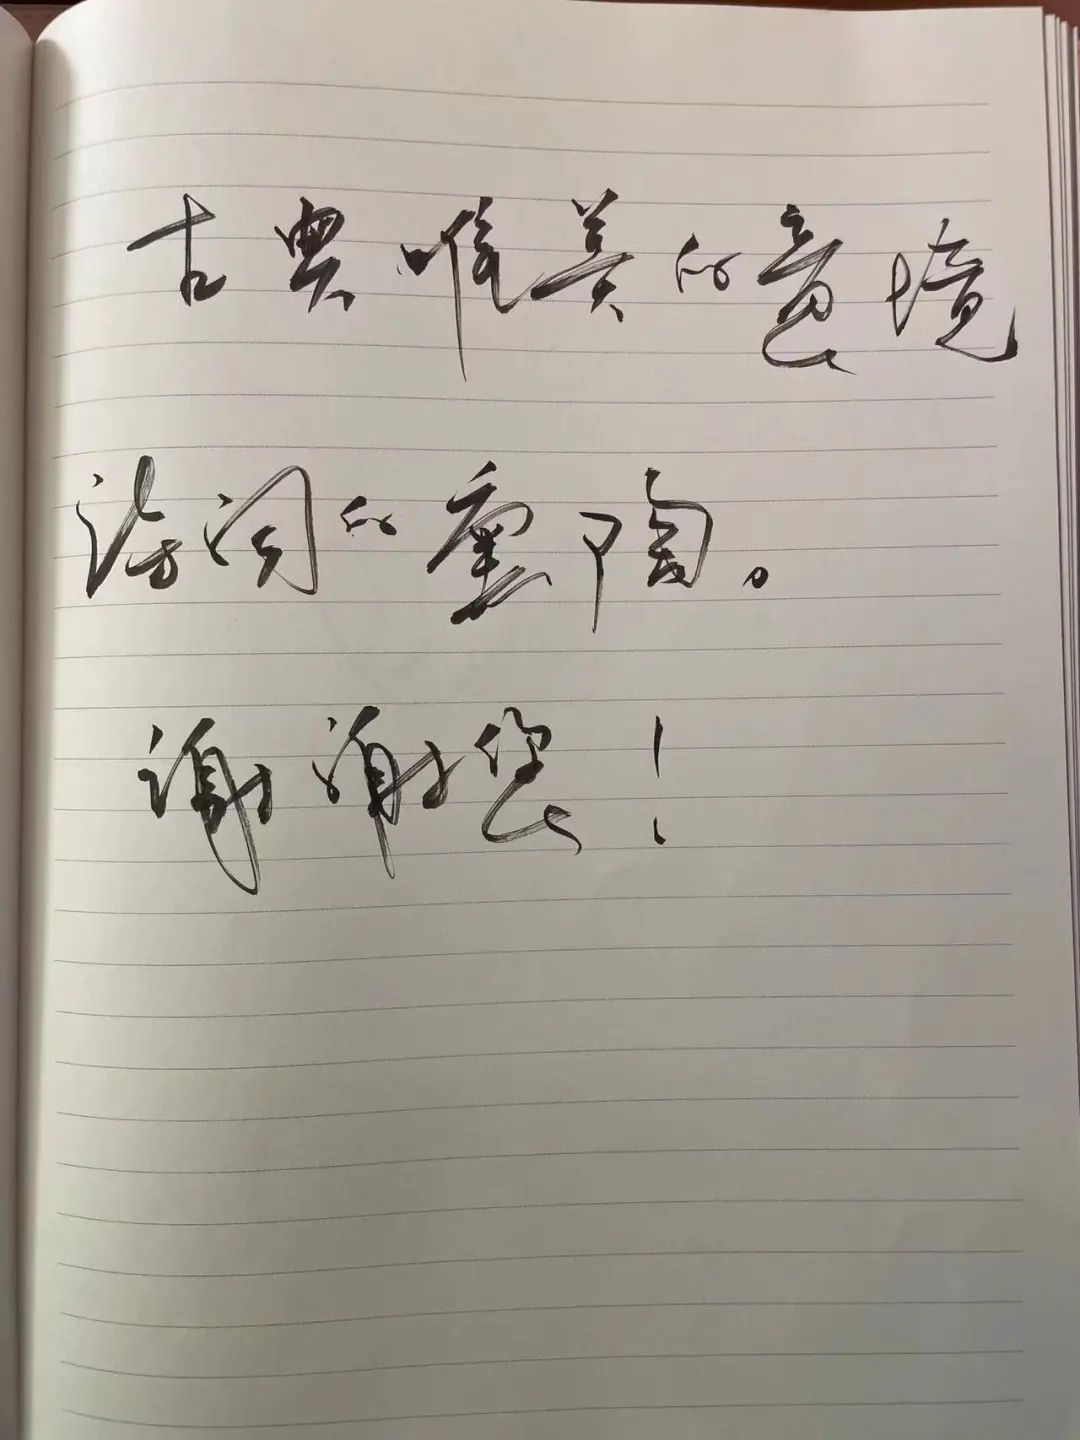 古典唯美的意境
诗词的熏陶。
谢谢您！